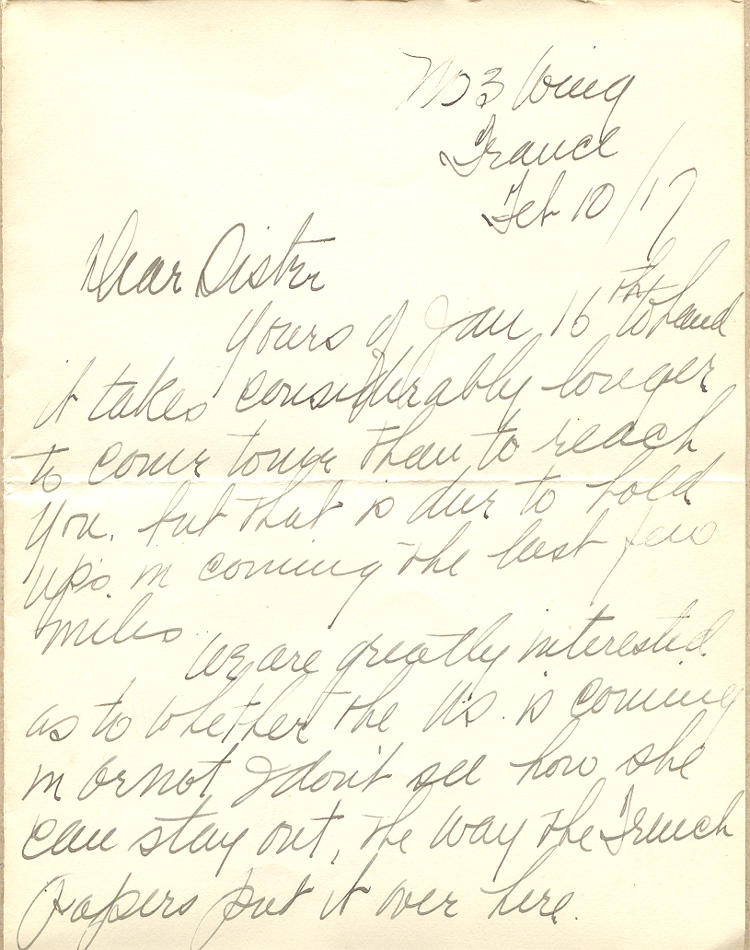 No 3 Wing
France
Feb 10/17
Dear Sister
Yours of Jan 16th to hand
it takes considerably longer
to come to me than to reach
you. but that is due to hold
ups. in coming the last few
miles.
We are greatly interested
as to whether the U.S. is coming
in or not. I don't see how she
can stay out, the way the French
Papers put it over here.